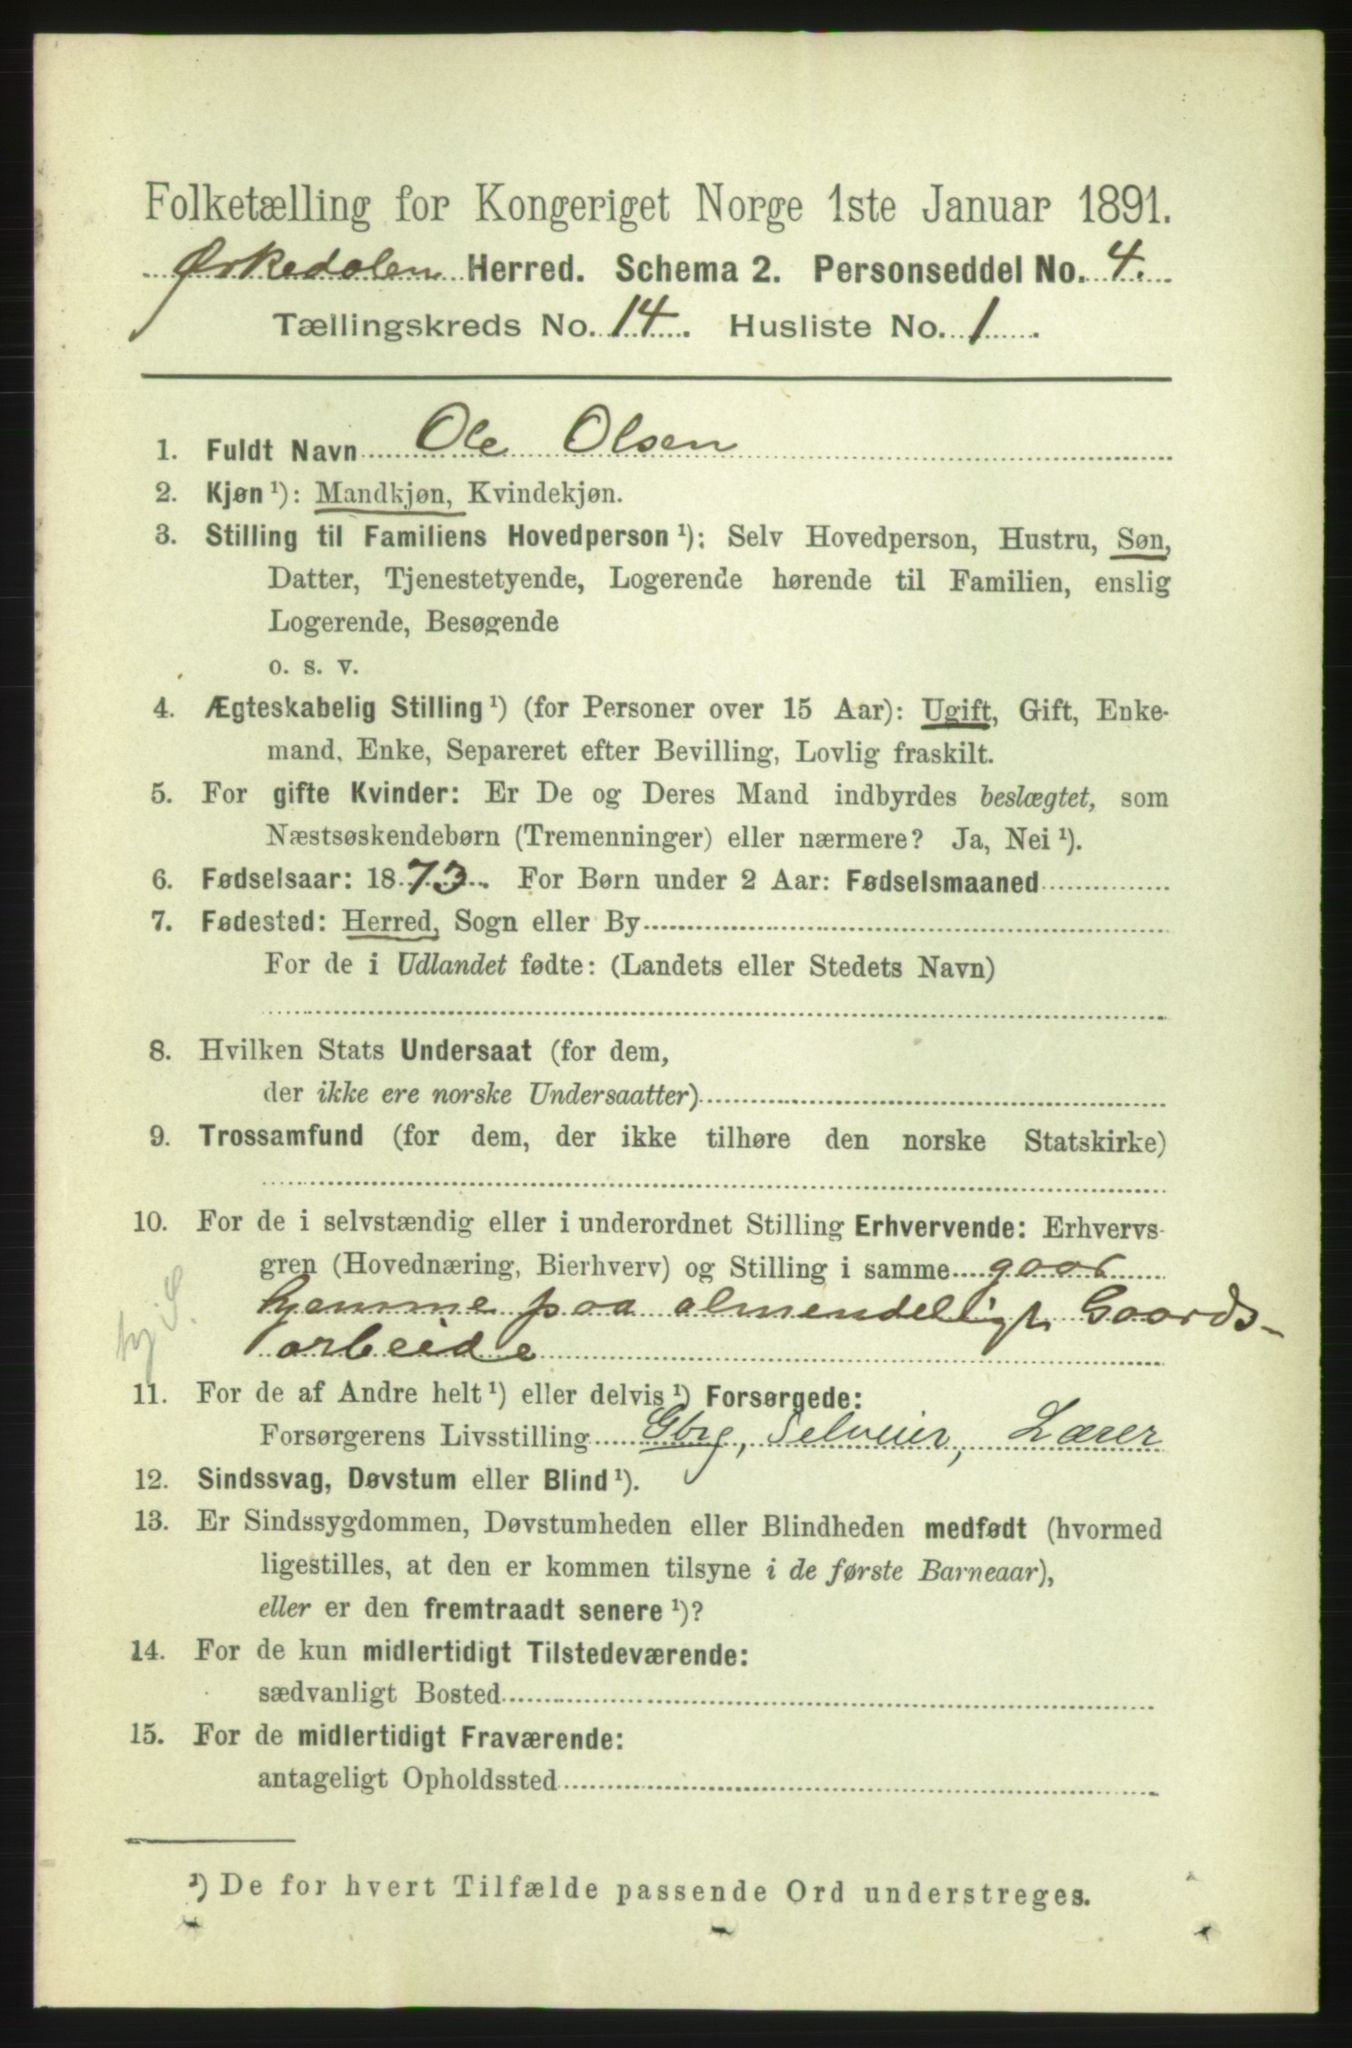 Folketælling for Kongeriget Norge 1ste Januar 1891.
Ørkedalen Herred. Schema 2. Personseddel No. 4.
Tællingskreds No. 14. Husliste No. 1.
1. Fuldt Navn Ole Olsen
2. Kjøn ¹): Mandkjøn, Kvindekjøn.
3. Stilling til Familiens Hovedperson ¹): Selv Hovedperson, Hustru, Søn,
Datter, Tjenestetyende, Logerende hørende til Familien, enslig
Logerende, Besøgende
o. s. v.
4. Ægteskabelig Stilling ¹) (for Personer over 15 Aar): Ugift, Gift, Enke-
mand, Enke, Separeret efter Bevilling, Lovlig fraskilt.
5. For gifte Kvinder: Er De og Deres Mand indbyrdes beslægtet, som
Næstsøskendebørn (Tremenninger) eller nærmere? Ja, Nei ¹).
6. Fødselsaar: 1873. For Børn under 2 Aar: Fødselsmaaned
7. Fødested: Herred, Sogn eller By
For de i Udlandet fødte: (Landets eller Stedets Navn)
8. Hvilken Stats Undersaat (for dem,
der ikke ere norske Undersaatter)
9. Trossamfund (for dem, der ikke tilhøre den norske Statskirke)
10. For de i selvstændig eller i underordnet Stilling Erhvervende: Erhvervs-
gren (Hovednæring, Bierhverv) og Stilling i samme gaar
hjemme paa almendeligt Gaards-
arbeide
hj S.
11. For de af Andre helt ¹) eller delvis ¹) Forsørgede:
Forsørgerens Livsstilling Gbrg, Selveier, Lærer
12. Sindssvag, Døvstum eller Blind ¹).
13. Er Sindssygdommen, Døvstumheden eller Blindheden medfødt (hvormed
ligestilles, at den er kommen tilsyne i de første Barneaar),
eller er den fremtraadt senere ¹)?
14. For de kun midlertidigt Tilstedeværende:
sædvanligt Bosted
15. For de midlertidigt Fraværende:
antageligt Opholdssted
¹) De for hvert Tilfælde passende Ord understreges.